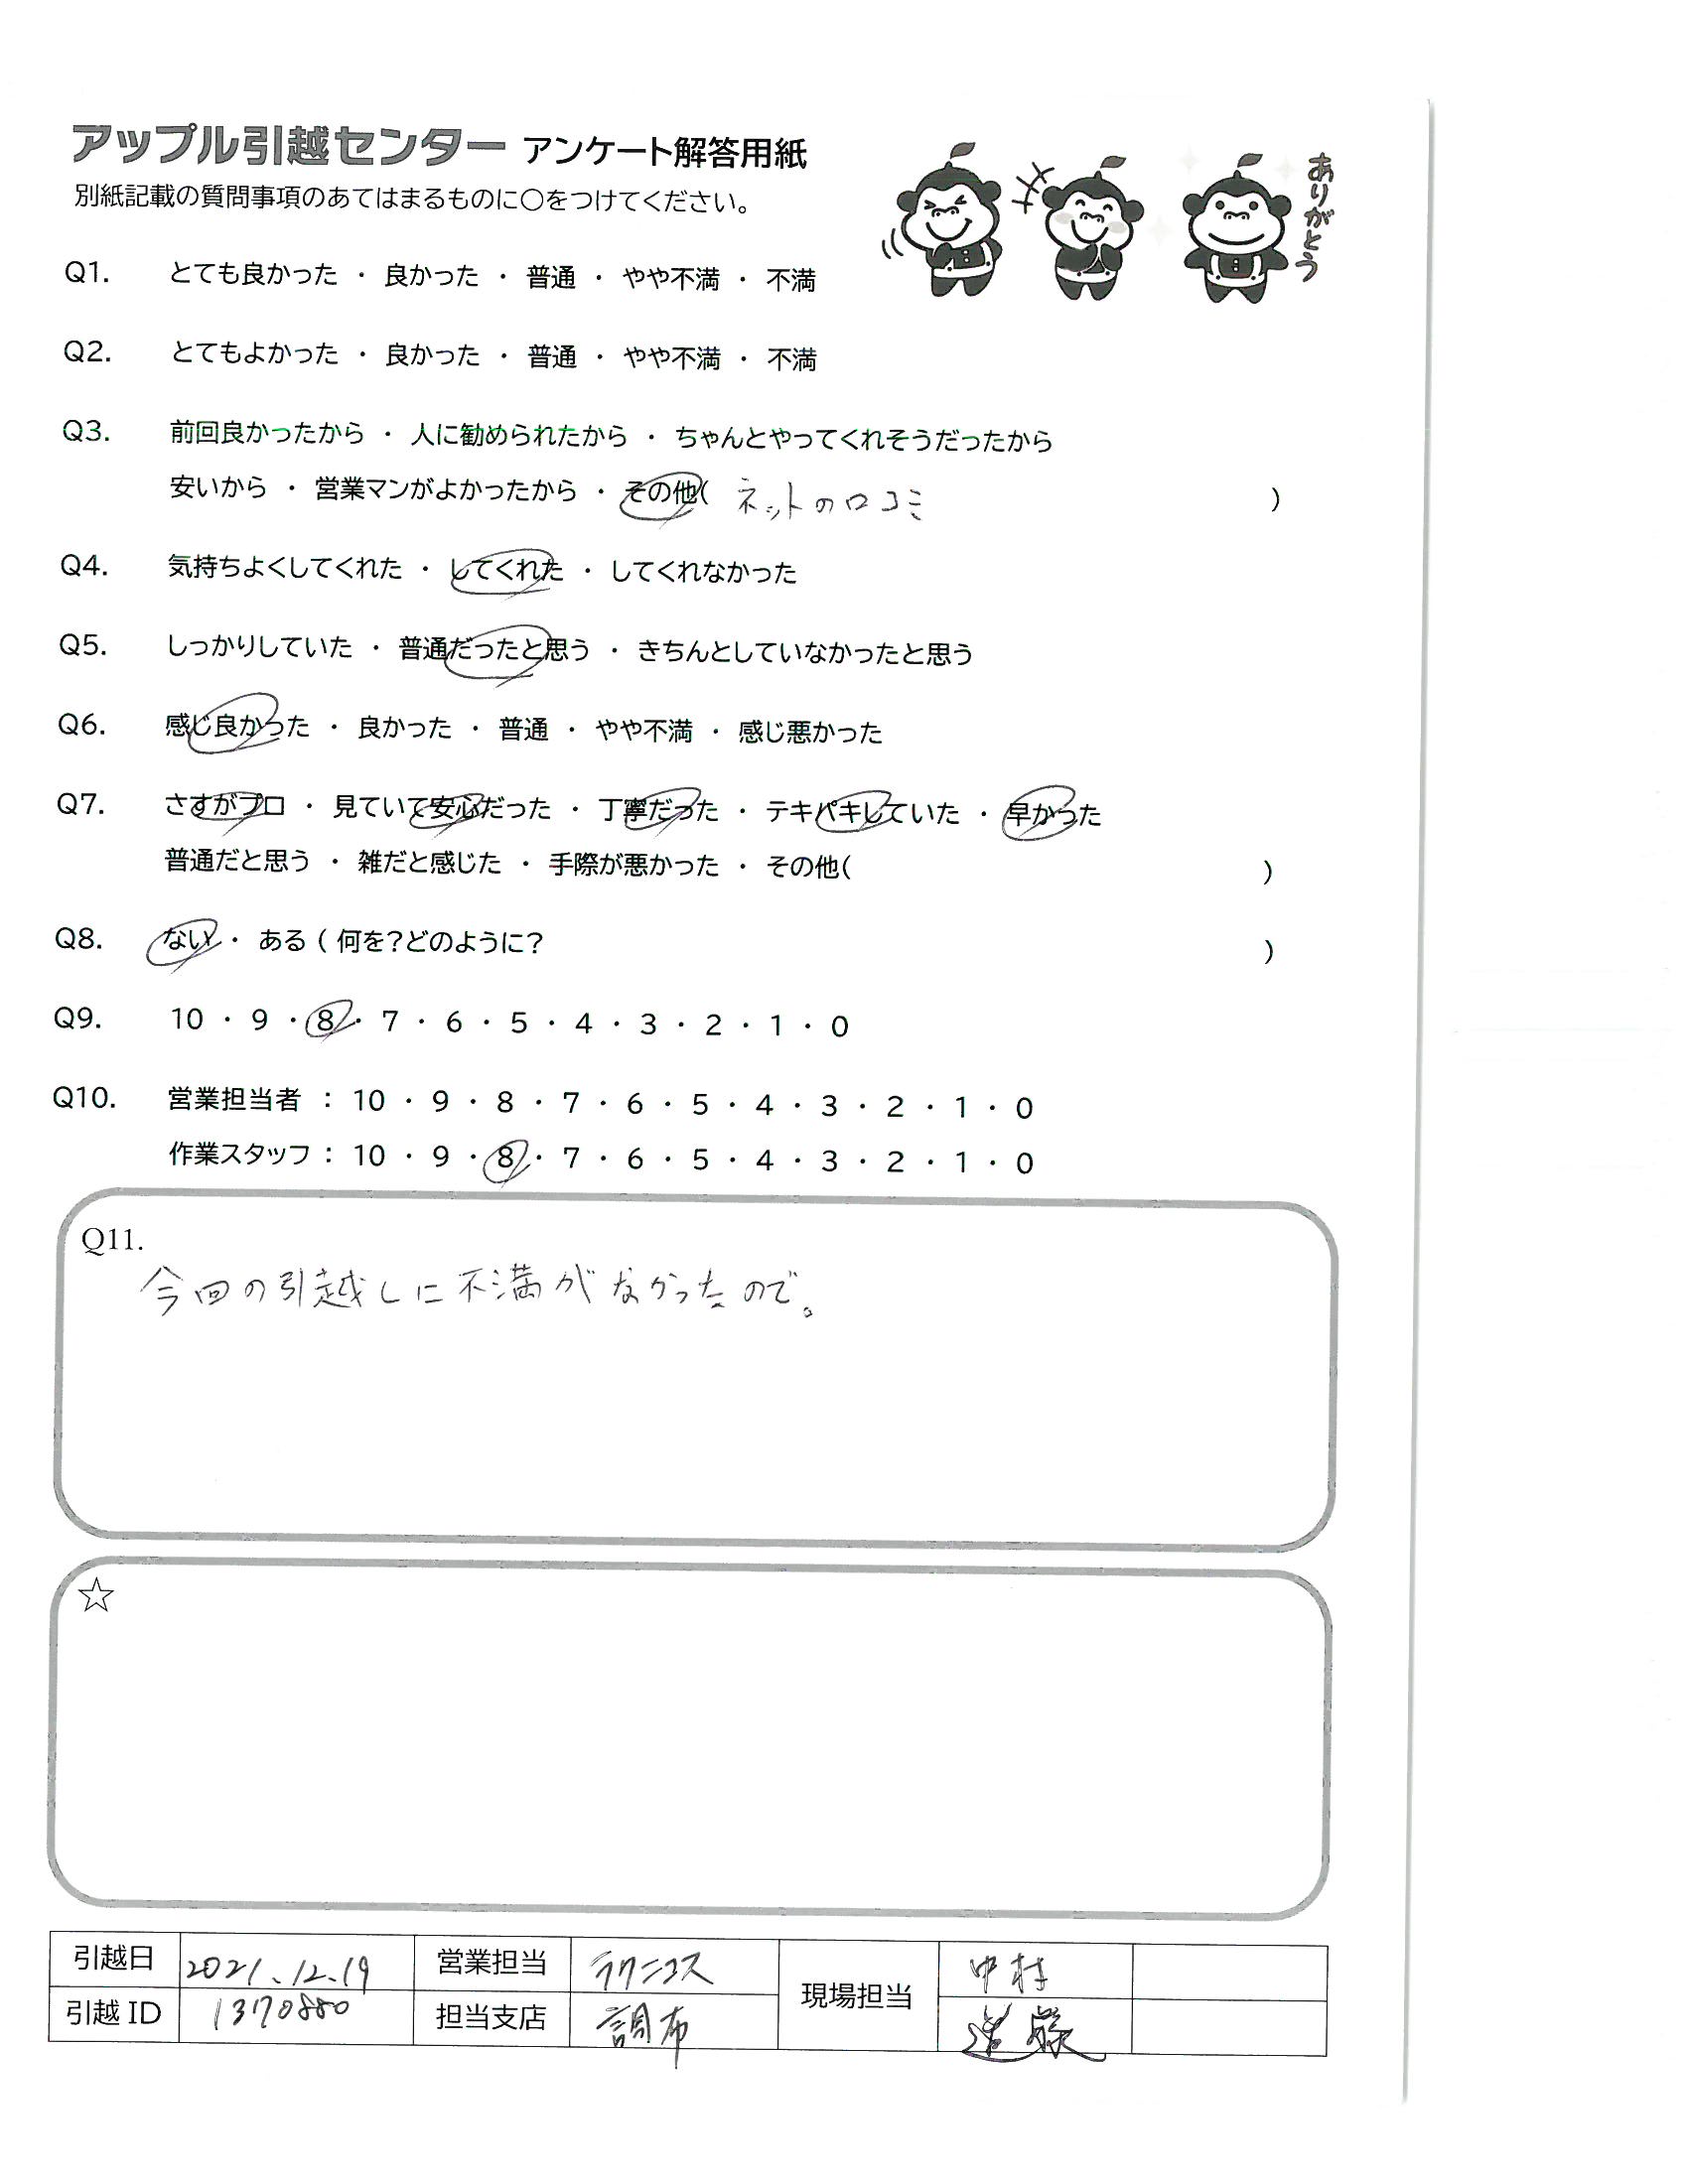 アップル引越センター アンケート解答用紙
別紙記載の質問事項のあてはまるものに○をつけてください。
ありがとう
Q1. とても良かった ・ 良かった ・ 普通 ・ やや不満 ・ 不満
Q2. とてもよかった ・ 良かった ・ 普通 ・ やや不満 ・ 不満
Q3. 前回良かったから ・ 人に勧められたから ・ ちゃんとやってくれそうだったから
安いから ・ 営業マンがよかったから ・ その他( ネットの口コミ )
Q4. 気持ちよくしてくれた ・ してくれた ・ してくれなかった
Q5. しっかりしていた ・ 普通だったと思う ・ きちんとしていなかったと思う
Q6. 感じ良かった ・ 良かった ・ 普通 ・ やや不満 ・ 感じ悪かった
Q7. さすがプロ ・ 見ていて安心だった ・ 丁寧だった ・ テキパキしていた ・ 早かった
普通だと思う ・ 雑だと感じた ・ 手際が悪かった ・ その他( )
Q8. ない ・ ある ( 何を?どのように? )
Q9. 10 ・ 9 ・ 8 ・ 7 ・ 6 ・ 5 ・ 4 ・ 3 ・ 2 ・ 1 ・ 0
Q10. 営業担当者 : 10 ・ 9 ・ 8 ・ 7 ・ 6 ・ 5 ・ 4 ・ 3 ・ 2 ・ 1 ・ 0
作業スタッフ : 10 ・ 9 ・ 8 ・ 7 ・ 6 ・ 5 ・ 4 ・ 3 ・ 2 ・ 1 ・ 0
Q11.
今回の引越しに不満がなかったので。
☆
引越日 2021.12.19 営業担当 ラクニコス 現場担当 中村
引越 ID 1370880 担当支店 調布 進藤